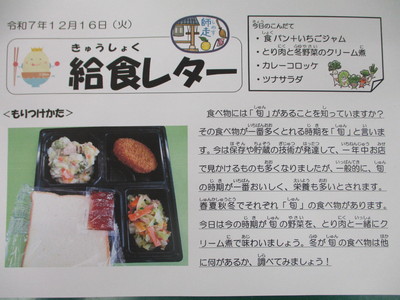 令和7年12月16日（火）
きゅうしょく
給食レター
師走
今日のこんだて
・食パン＋いちごジャム
・とり肉と冬野菜のクリーム煮
・カレーコロッケ
・ツナサラダ
＜もりつけかた＞
食べ物には「旬」があることを知っていますか？
その食べ物が一番多くとれる時期を「旬」と言いま
す。今は保存や貯蔵の技術が発達して、一年中お店
で見かけるものも多くなりましたが、一般的に、旬
の時期が一番おいしく、栄養も多いとされます。
春夏秋冬でそれぞれ「旬」の食べ物があります。
今日は今の時期が旬の野菜を、とり肉と一緒にク
リーム煮で味わいましょう。冬が旬の食べ物は他
に何があるか、調べてみましょう！